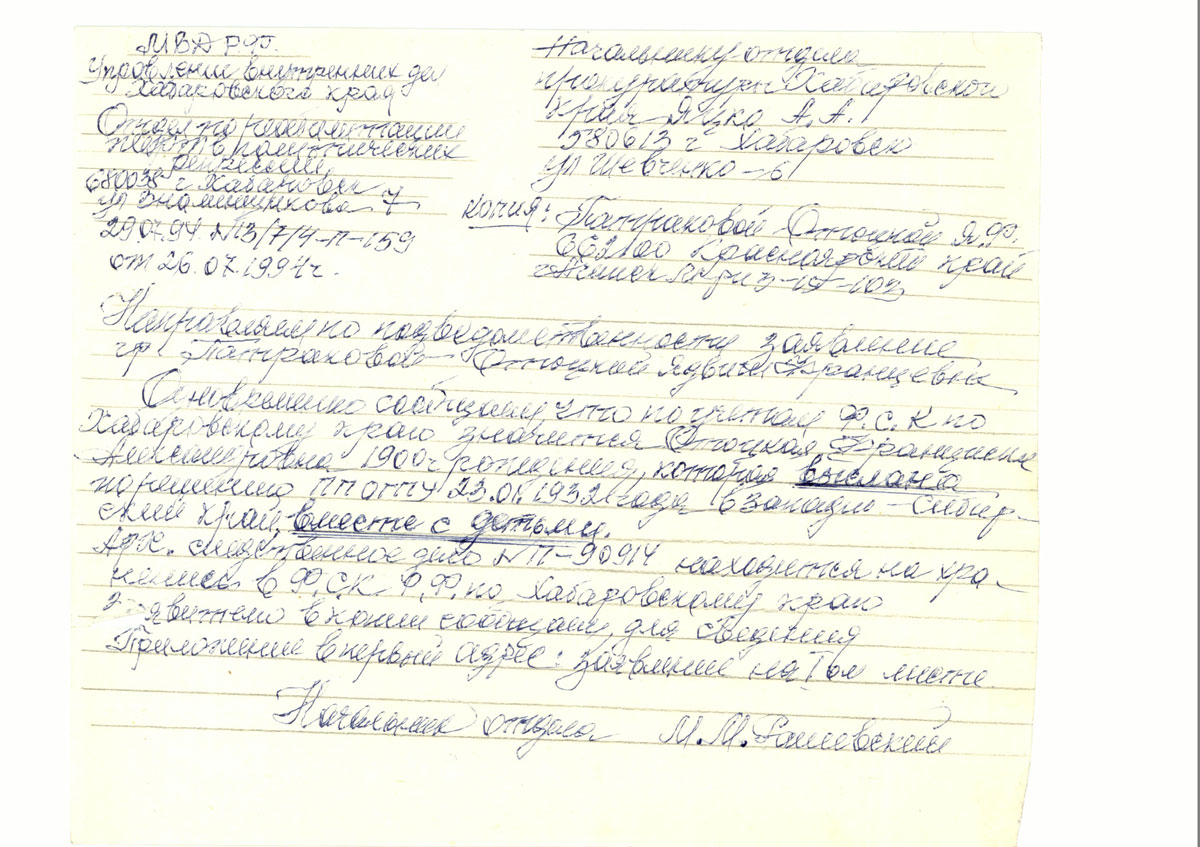 МВД РФ.
Управление внутренних дел
Хабаровского края
Отдел по реабилитации
жертв политических
репрессий
680038 г Хабаровск
ул 7
29.07.94 №13/7/4-П-159
от 26.07.1994г.
Начальнику отдела
прокуратуры Хабаровского
края Яцко А.А.
580613 г Хабаровск
ул Шевченко-6
копия: Патраковой-Отоцкой Я.Ф.
Красноярский край
г Ачинск
Направляем по подведомственности заявление
гр. Патраковой-Отоцкой Ядвиги Францевны
Одновременно сообщаем что по учетам Ф.С.К по
Хабаровскому краю значится Отоцкая
Александровна 1900г рождения, которая выслана
по решению ПП ОГПУ 1932 года в западно-Сибир-
ский край, вместе с детьми.
Арх. следственное дело №П-90914 находится на хра-
нении в Ф.С.К Р.Ф. по Хабаровскому краю
в копии сообщаем, для сведения
Приложение в первый адрес: заявление на листе
Начальник отдела М.М.